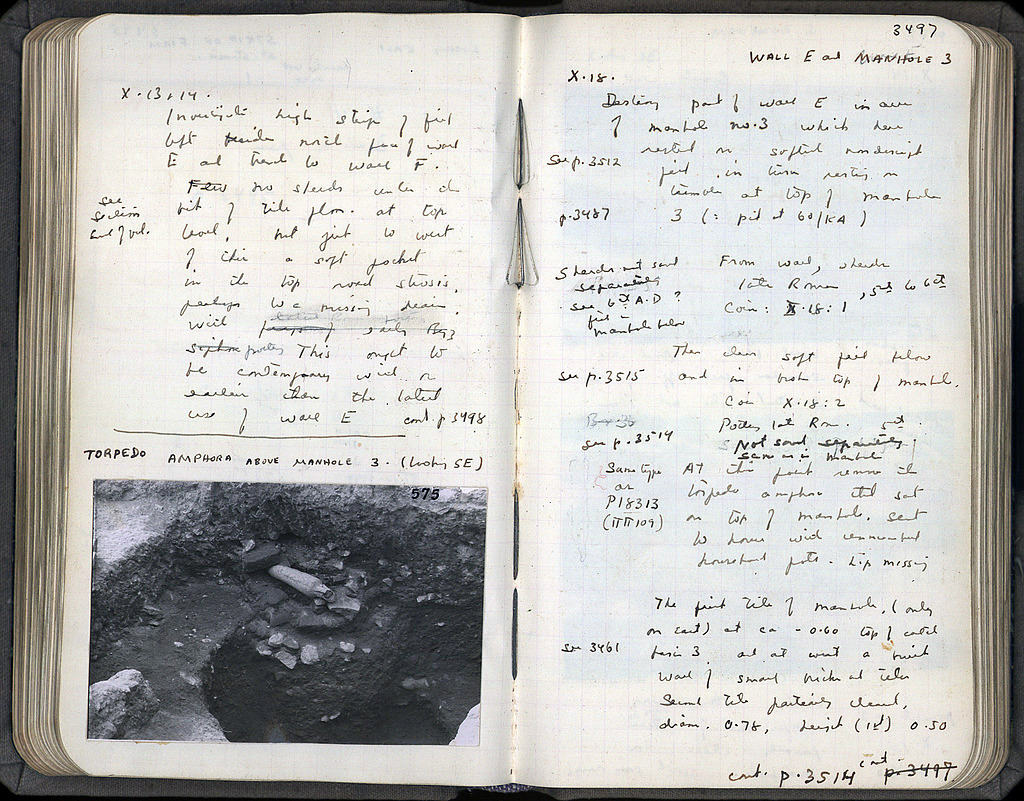 X·13+14.
Investigate high strip of fill
left beside north face of wall
E and trend to wall F.
Few no sherds under the
see section end of vol.
bit of tile floor. at top
level, but just to west
of this a soft pocket
in the top road strosis,
perhaps to a missing drain,
with of early Byz
This ought to
be contemporary with or
earlier than the latest
use of wall E cont. p 3498
TORPEDO AMPHORA ABOVE MANHOLE 3. (looking SE)
575
3497
WALL E and MANHOLE 3
X·18.
Destroy part of wall E in area
of manhole no.3 which here
rested on softish nondescript
see p.3512
fill in turn resting on
tumble at top of manhole
p.3487
3 (: pit at 60/KA)
Sherds not saved separately
see 6th A.D?
fill in manhole below
From wall, sherds
late Roman, 5th to 6th
Coin: X·18:1
Then clear soft fill below
see p.3515
and in broken top of manhole.
Coin X·18:2
see p.3514
Pottery late Rom. 5th.
Not saved separately
same as in manhole
Same type as P18313 (ΠΠ109)
At this point remove the
torpedo amphora that sat
on top of manhole. sent
to house with
household pots. Lip missing
The first tile of manhole, (only
on East) at ca -0.60 top of
see 3461
basin 3 and at west a built
wall of small bricks and tiles
Second tile partially cleared,
diam. 0.78, height (1st) 0.50
cont. p.3514 cont. p.3497